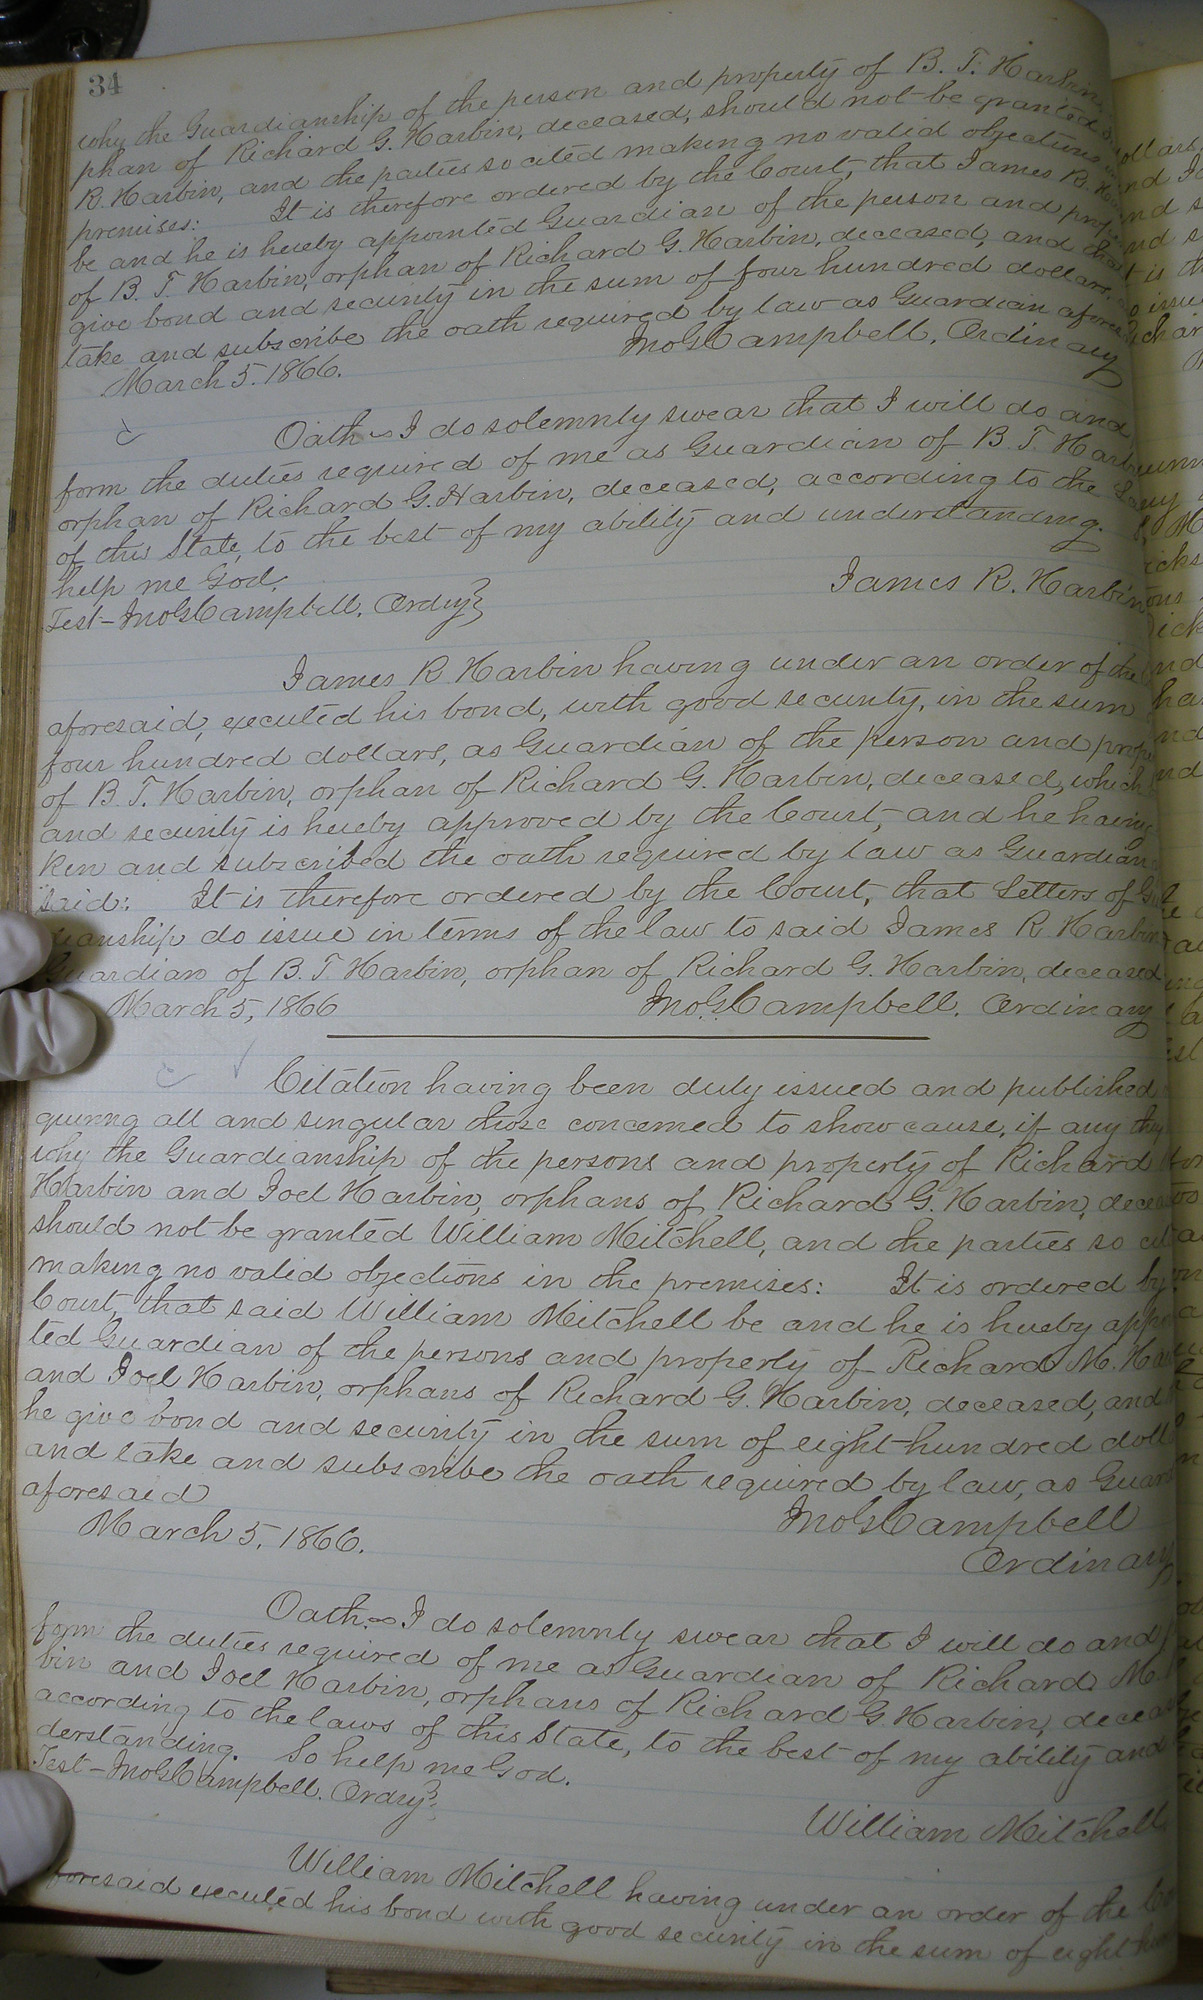 34
why the Guardianship of the person and property of B. T. Harbin,
phan of Richard G. Harbin, deceased, should not be granted
R. Harbin, and the parties so cited making no valid objections
premises: It is therefore ordered by the Court, that James R.
be and he is hereby appointed Guardian of the person and
of B. T. Harbin, orphan of Richard G. Harbin, deceased, and
give bond and security in the sum of four hundred dollars,
take and subscribe the oath required by law as Guardian
March 5. 1866. Jno G Campbell, Ordinary
Oath I do solemnly swear that I will do and
form the duties required of me as Guardian of B. T.
orphan of Richard G. Harbin, deceased, according to the
of this State, to the best of my ability and understanding.
help me God.
James R. Harbin
Test - Jno G Campbell, Ordry
James R. Harbin having under an order of the
aforesaid, executed his bond, with good security, in the sum
four hundred dollars, as Guardian of the person and
of B. T. Harbin, orphan of Richard G. Harbin, deceased, which
and security is hereby approved by the Court, and he having
ken and subscribed the oath required by law as Guardian
said: It is therefore ordered by the Court, that Letters of
dianship do issue in terms of the law to said James R. Harbin
Guardian of B. T. Harbin, orphan of Richard G. Harbin, deceased
March 5, 1866 Jno. G. Campbell, Ordinary
Citation having been duly issued and published
quiring all and singular those concerned to show cause, if any they
why the Guardianship of the persons and property of Richard
Harbin and Joel Harbin, orphans of Richard G. Harbin,
should not be granted William Mitchell, and the parties so
making no valid objections in the premises: It is ordered by
Court, that said William Mitchell be and he is hereby
ted Guardian of the persons and property of Richard M.
and Joel Harbin, orphans of Richard G. Harbin, deceased, and
he give bond and security in the sum of eight hundred
and take and subscribe the oath required by law, as
aforesaid
March 5, 1866. Jno G Campbell
Ordinary
Oath. I do solemnly swear that I will do and
form the duties required of me as Guardian of Richard M.
bin and Joel Harbin, orphans of Richard G. Harbin,
according to the laws of this State, to the best of my ability and
derstanding. So help me God.
Test - Jno G Campbell. Ordry
William Mitchell
William Mitchell having under an order of the
foresaid executed his bond with good security in the sum of eight